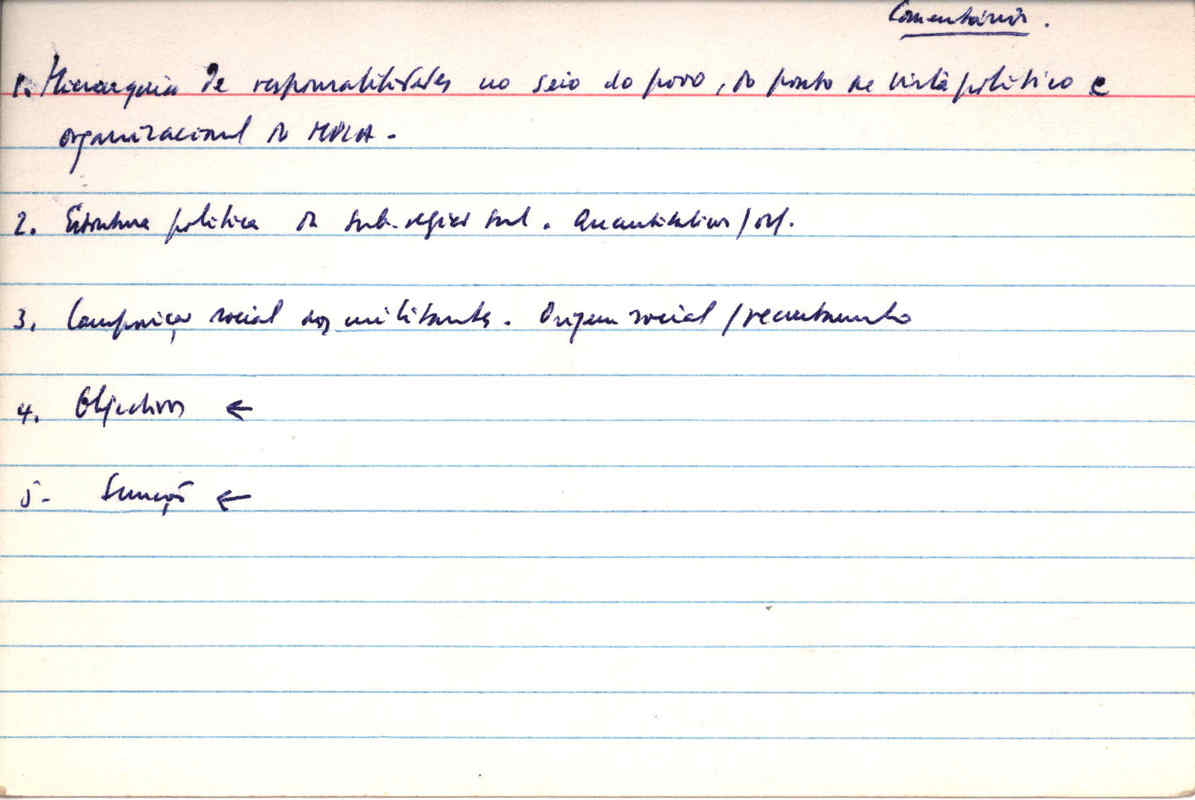 Comentários.
1. Hierarquia de responsabilidades no seio do povo, do ponto de vista político e
organizacional do MPLA.
2. Estrutura política da sub-região sul. Quantitativos/org.
3. Composição social dos militantes. Origem social/recrutamento
4. Objectivos ←
5- Função ←